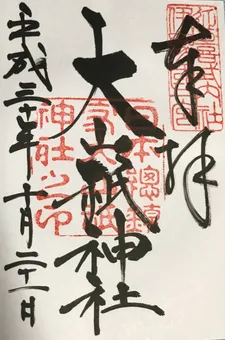 奉拝
日本總鎮
守大山祇
神社之印
大山祇神社
平成三十年十月二十一日